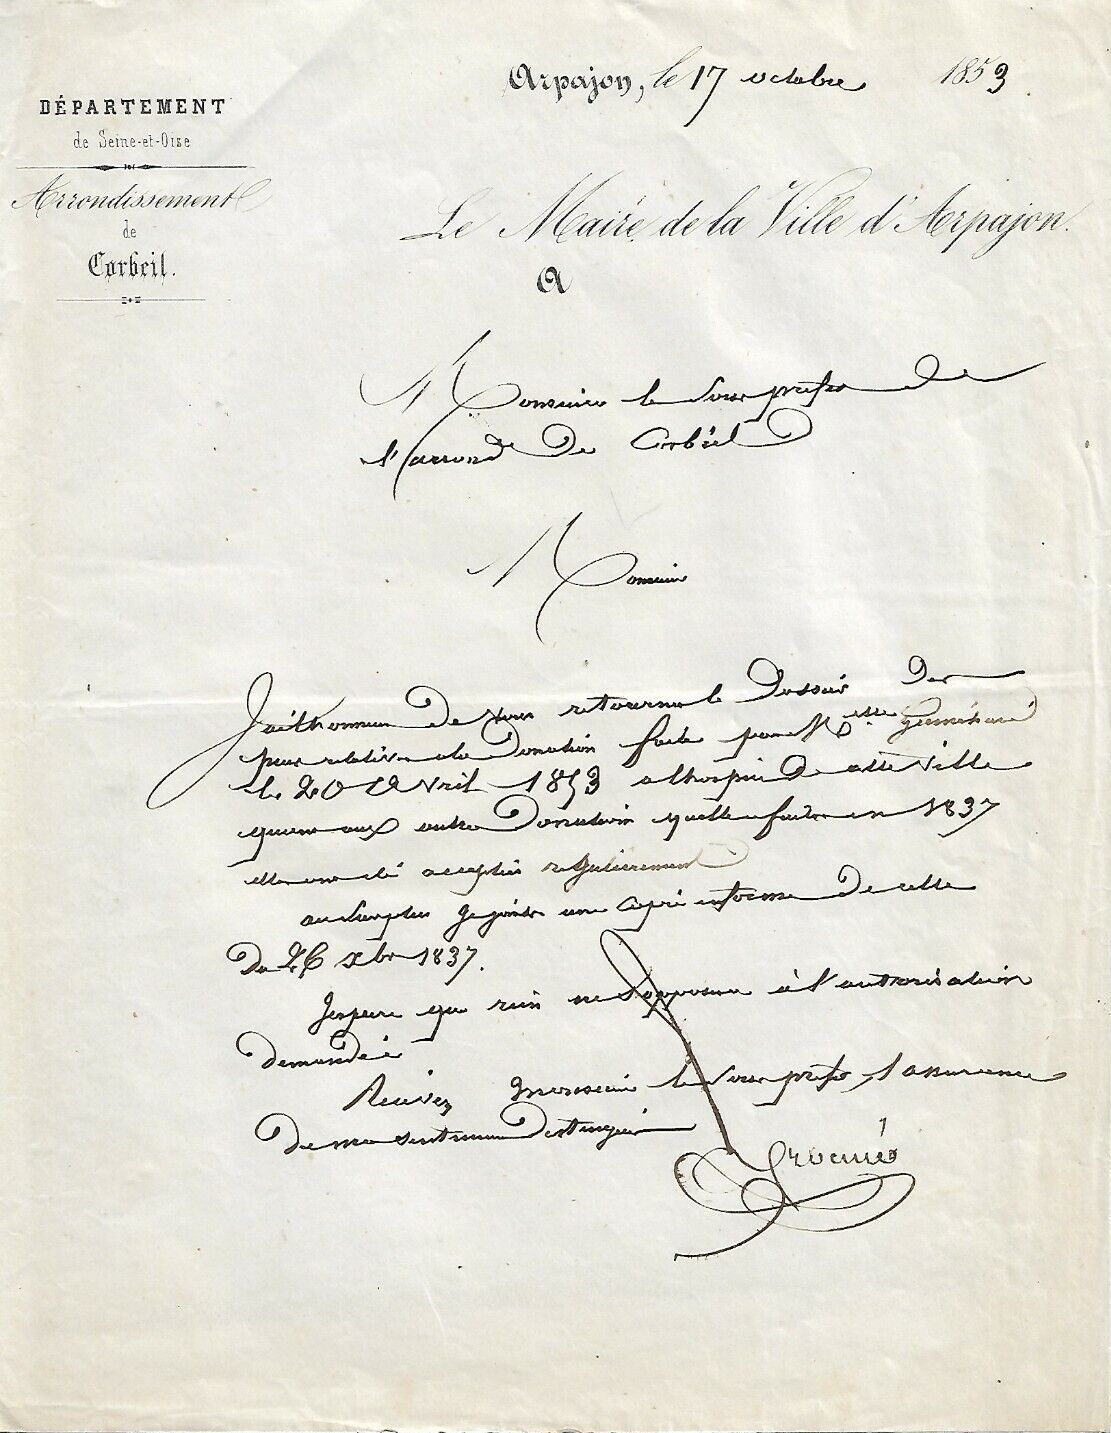 Arpajon, le 17 octobre 1853
DÉPARTEMENT
de Seine-et-Oise
Arrondissement
de
Corbeil.
Le Maire de la Ville d'Arpajon.
A
Monsieur le Sous préfet de
l'arrond de Corbeil
Monsieur
J'ai l'honneur de vous retourner le Dossier des
relative a la Donation faite par Melle
le 20 Avril 1853 a l'hospice De cette Ville
quant aux autres Donation quelle a faites en 1837
elle ont été acceptées régulièrement
au Surplus je joindre une Copie informe De celle
Du 26 xbre 1837.
J'espere que rien ne S'opposera à l'autorisation
demandée
Recevez Monsieur le Sous préfet, l'assurance
De mes sentimens Distingués